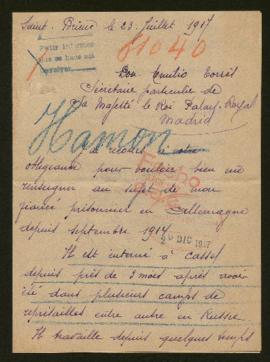 Saint-Brieuc le 23 Juillet 1917
61040
Petit informes
que se hace sa
Don Emilio Torrès
Secrétaire particulier de
Sa Majesté le Roi Palais-Royal
Madrid
Hamon
Je recours à votre
obligeance pour vouloir bien me
renseigner au sujet de mon
fiancé prisonnier en Allemagne
depuis septembre 1914
20 DIC 1917
Il est interné à Cassel
depuis près de 3 mois après avoir
été dans plusieurs camps de
représailles entre autre en Russie
Il travaille depuis quelques temps